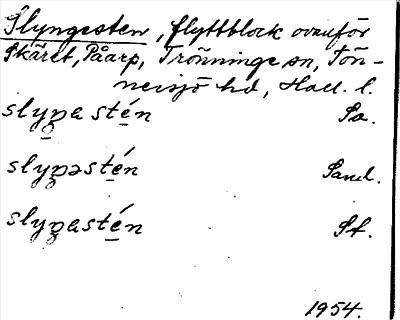 Slyngesten, flyttblock ovanför
Skäret, Påarp, Trönninge sn, Tön-
nersjö hd, Hall. l.
slyŋa stén Sa.
slyŋəstén Sand.
slyŋastén St.
1954.